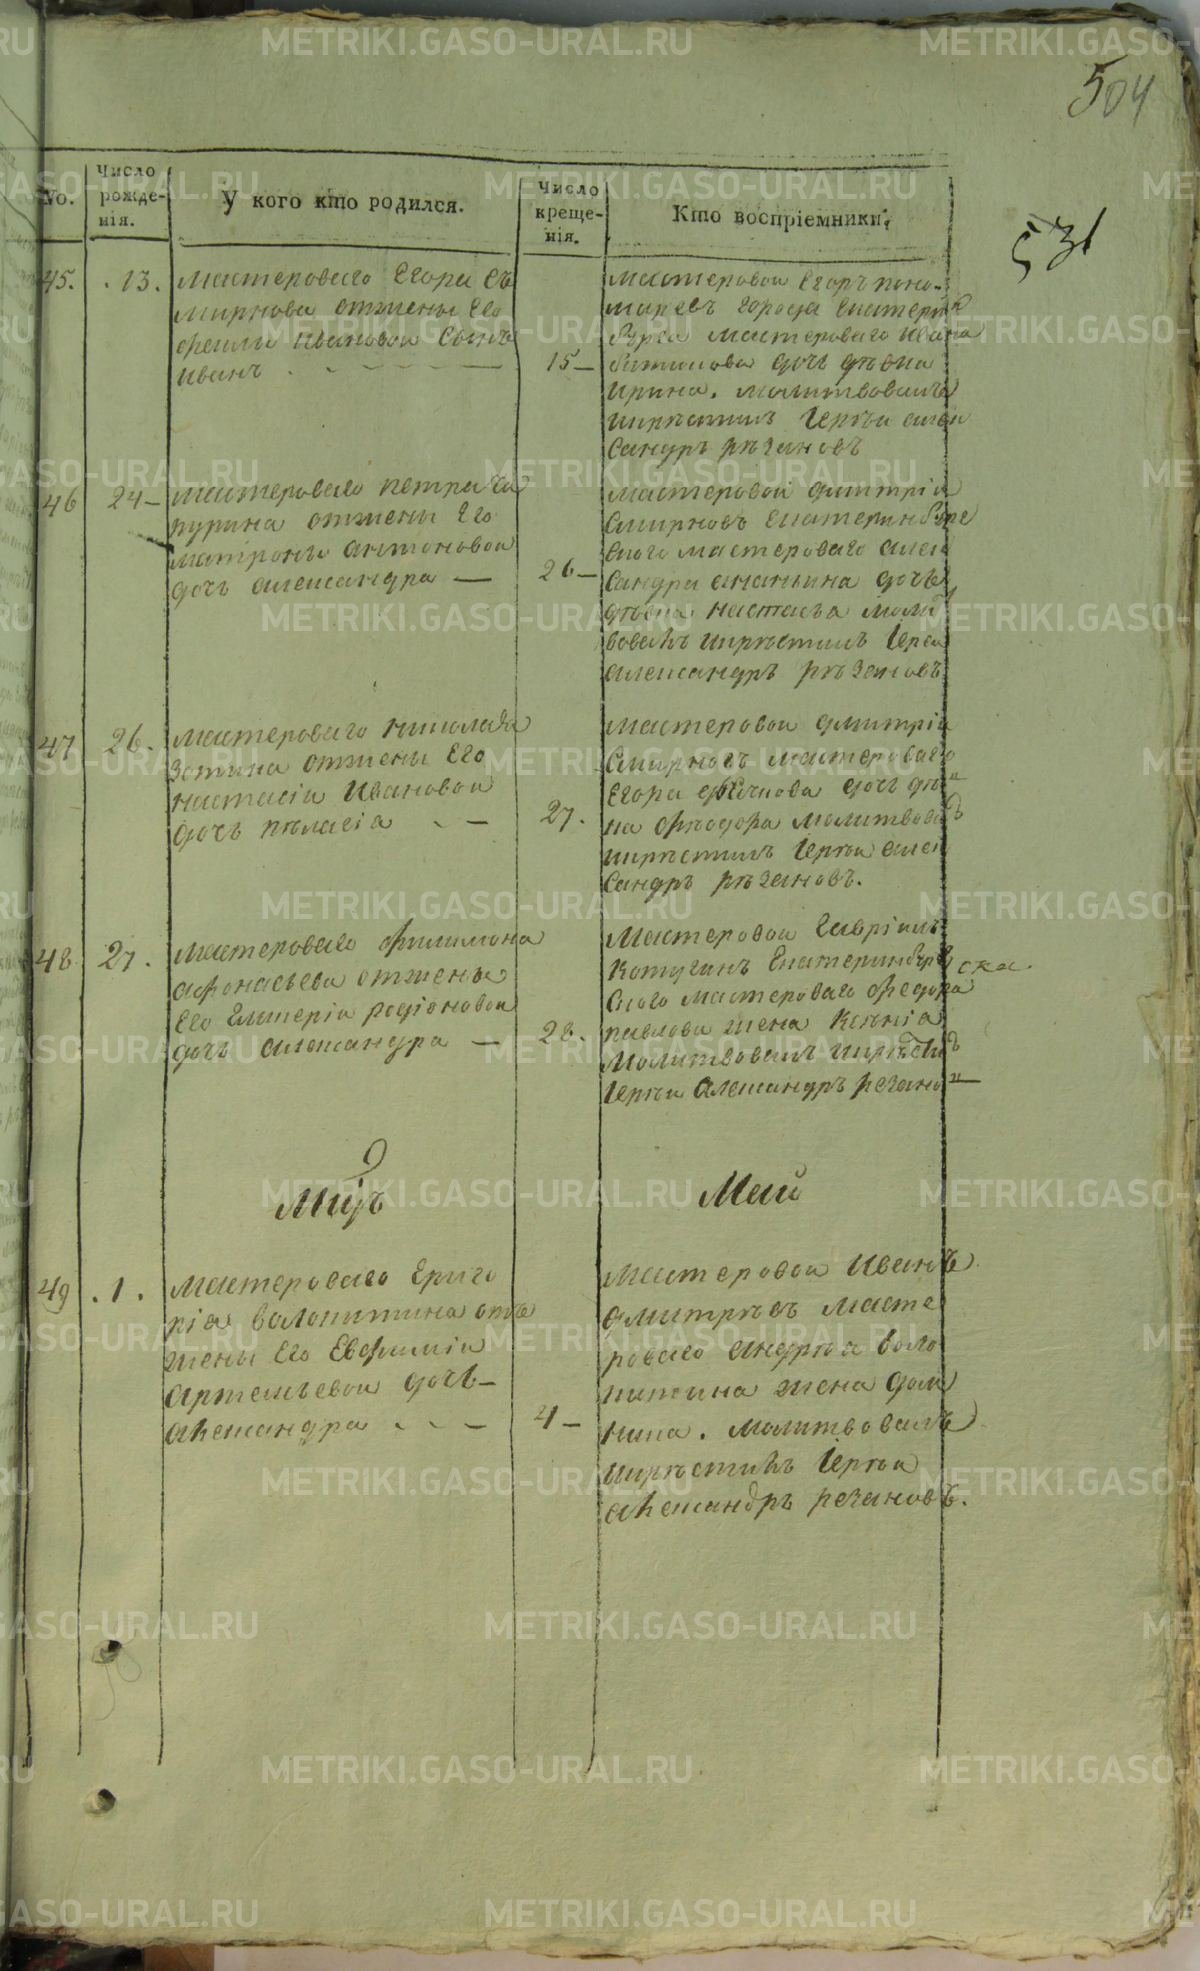 504
531
No.
Число рожде-нія.
У кого кто родился.
Число креще-нія.
Кто воспріемники,
45.
. 13 .
мастероваго Егора съ
мирнова отжены Его
Ивановой сынъ
иванъ
15 –
мастеровой Егоръ поно-
маревъ города Екатерин
бурга мастероваго ивана
дочь дѣвка
ирина. молитвовалъ
икрѣстилъ Іерѣй алек
сандръ рѣзановъ
46
24 –
мастероваго петра ча
пурина отжены Его
матроны антоновой
дочь александра —
26 –
мастеровой димитрій
Смирновъ Екатеринбург
скаго мастероваго алек
сандра ананьина дочь
дѣвка настасья молит
вовалъ икрѣстилъ Іерей
александръ рѣзановъ
47
26 .
мастероваго николая
зотина отжены Его
настасіи Ивановой
дочь пѣлагія - –
27 .
мастеровой димитрій
Смирновъ мастероваго
Егора дочь дѣв
ка ѳѣодора молитвовалъ
икрѣстилъ Іерѣй алек
сандръ рѣзановъ.
48
27 .
мастероваго филимона
афонасьева отжены
Его Гликеріи родіоновой
дочь александра —
28 .
Мастеровой Гавріилъ
Котугинъ Екатеринбург
ска.
скаго мастероваго федора
павлова жена Ксѣнія
Молитвовалъ икрѣстилъ
Іерѣй Александръ резановъ —
Мцъ
Маій
49
. 1 .
мастероваго Григо
рія волокитина отъ
жены Его Евфиміи
Артемьевой дочь –
александра - - –
4 –
мастеровой Иванъ
дмитрѣевъ масте
роваго андрѣя воло
китина жена дом
ника. молитвовалъ
икрѣстилъ Іерѣй
александръ резановъ.
METRIKI.GASO-URAL.RU